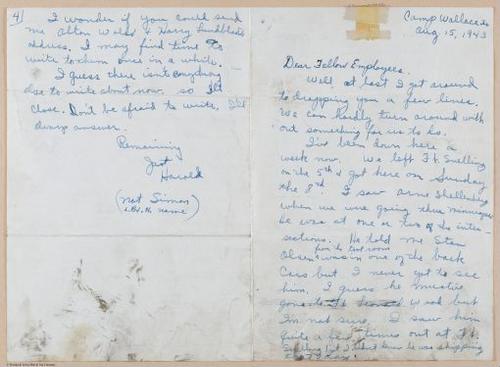 4)
I wonder if you could send
me Alton Wald & Harry Lundblad's
address. I may find time to
write to them once in a while.
I guess there isn't anything
else to write about now. so I'll
close. Don't be afraid to write. I'll
always answer.
Remaining
Just
Harold
(Not Simon)
Camp Wallace
Aug 15, 1943
Dear Fellow Employees.
Well, at last I got around
to dropping you a few lines.
We can hardly turn around with
out something for us to do.
I've been down here a
week now. We left Ft. Snelling
on the 5th & got here on Sunday
the 8th. I saw Arne
when we were going thru
he was at one or two of the inter-
sections. He told me Stan
Olsen from the tool room was in one of the back
cars but I never got to see
him. I guess he
but
I'm not sure. I saw him
quite a few times out at Ft.
Snelling but I didn't know he was shipping